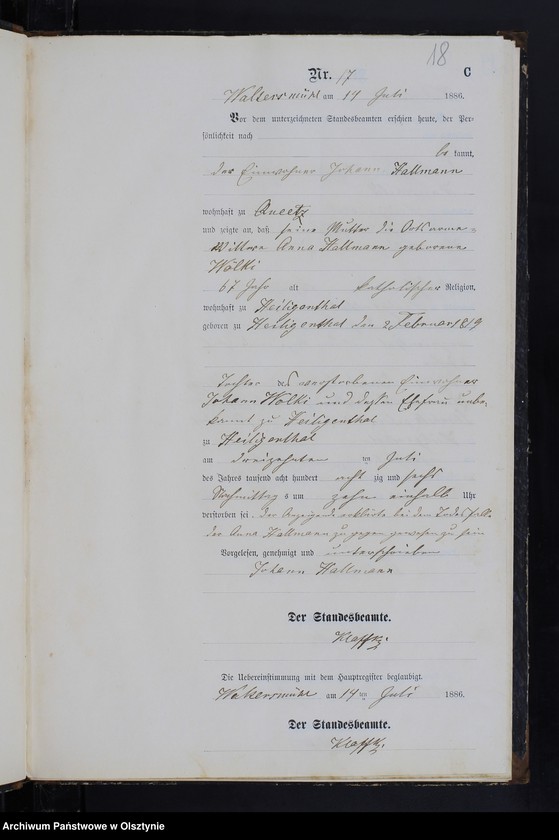 18
Nr. 17 C
Waltersmühl am 14 Juli 1886.
Vor dem unterzeichneten Standesbeamten erschien heute, der Per-
sönlichkeit nach
be kannt,
der Einwohner Johann Hallmann
wohnhaft zu Queetz
und zeigte an, daß seine Mutter die Ortsarme-
Wittwe Anna Hallmann geborene
Wolki
67 Jahr alt katholischer Religion,
wohnhaft zu Heiligenthal
geboren zu Heiligenthal den 2 Februar 1819
Tochter des verstorbenen Einwohner
Johann Wolki und dessen Ehefrau unbe-
kannt zu Heiligenthal
zu Heiligenthal
am dreizehnten ten Juli
des Jahres tausend acht hundert acht zig und sechs
Nachmittag s um zehn einhalb Uhr
verstorben sei. Der Anzeigende erklärte bei dem Todesfalle
der Anna Hallmann zugegen gewesen zu sein
Vorgelesen, genehmigt und unterschrieben
Johann Hallmann
Der Standesbeamte.
Klaffki.
Die Uebereinstimmung mit dem Hauptregister beglaubigt.
Waltersmühl am 14ten Juli 1886.
Der Standesbeamte.
Klaffki.
Archiwum Państwowe w Olsztynie